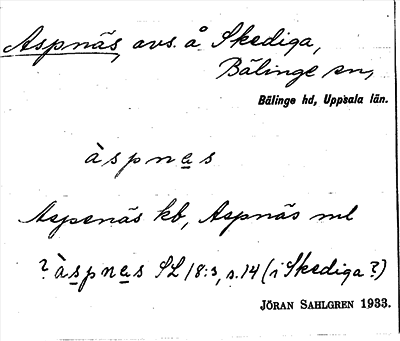 Aspnäs, avs. å Skediga,
Bälinge sn,
Bälinge hd, Uppsala län.
àspnas
Aspenäs kb, Aspnäs ml
? àspnas SL 18:3, s. 14 (i Skediga?)
JÖRAN SAHLGREN 1933.